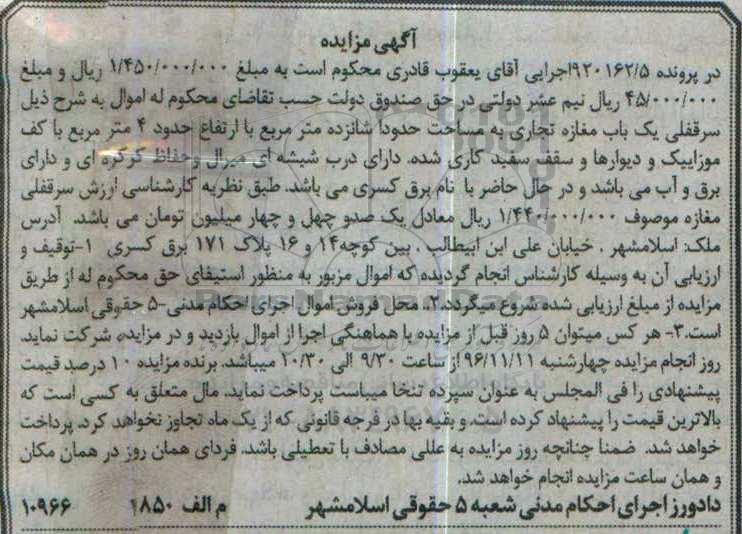 آگهی مزایده
در پرونده ۹۲۰۱۶۲/۵اجرایی آقای یعقوب قادری محکوم است به مبلغ ۱/۴۵۰/۰۰۰/۰۰۰ ریال و مبلغ
۴۵/۰۰۰/۰۰۰ ریال نیم عشر دولتی در حق صندوق دولت حسب تقاضای محکوم له اموال به شرح ذیل
سرقفلی یک باب مغازه تجاری به مساحت حدودا شانزده متر مربع با ارتفاع حدود ۴ متر مربع با کف
موزاییک و دیوارها و سقف سفید کاری شده. دارای درب شیشه ای میرال وحفاظ کرکره ای و دارای
برق و آب می باشد و در حال حاضر با نام برق کسری می باشد. طبق نظریه کارشناسی ارزش سرقفلی
مغازه موصوف ۱/۴۴۰/۰۰۰/۰۰۰ ریال معادل یک صدو چهل و چهار میلیون تومان می باشد. آدرس
ملک: اسلامشهر . خیابان علی ابن ابیطالب . بین کوچه۱۴ و ۱۶ پلاک ۱۷۱ برق کسری ۱-توقیف و
ارزیابی آن به وسیله کارشناس انجام گردیده که اموال مزبور به منظور استیفای حق محکوم له از طریق
مزایده از مبلغ ارزیابی شده شروع میگردد.۲- محل فروش اموال اجرای احکام مدنی -۵ حقوقی اسلامشهر
است.۳- هر کس میتوان ۵ روز قبل از مزایده با هماهنگی اجرا از اموال بازدید و در مزایده شرکت نماید.
روز انجام مزایده چهارشنبه ۹۶/۱۱/۱۱ از ساعت ۹/۳۰ الی ۱۰/۳۰ میباشد. برنده مزایده ۱۰ درصد قیمت
پیشنهادی را فی المجلس به عنوان سپرده تنخا میباست پرداخت نماید. مال متعلق به کسی است که
بالاترین قیمت را پیشنهاد کرده است. و بقیه بها در فرجه قانونی که از یک ماه تجاوز نخواهد کرد. پرداخت
خواهد شد. ضمنا چنانچه روز مزایده به عللی مصادف با تعطیلی باشد. فردای همان روز در همان مکان
و همان ساعت مزایده انجام خواهد شد.
دادورز اجرای احکام مدنی شعبه ۵ حقوقی اسلامشهر م الف ۱۸۵۰ ۱۰۹۶۶